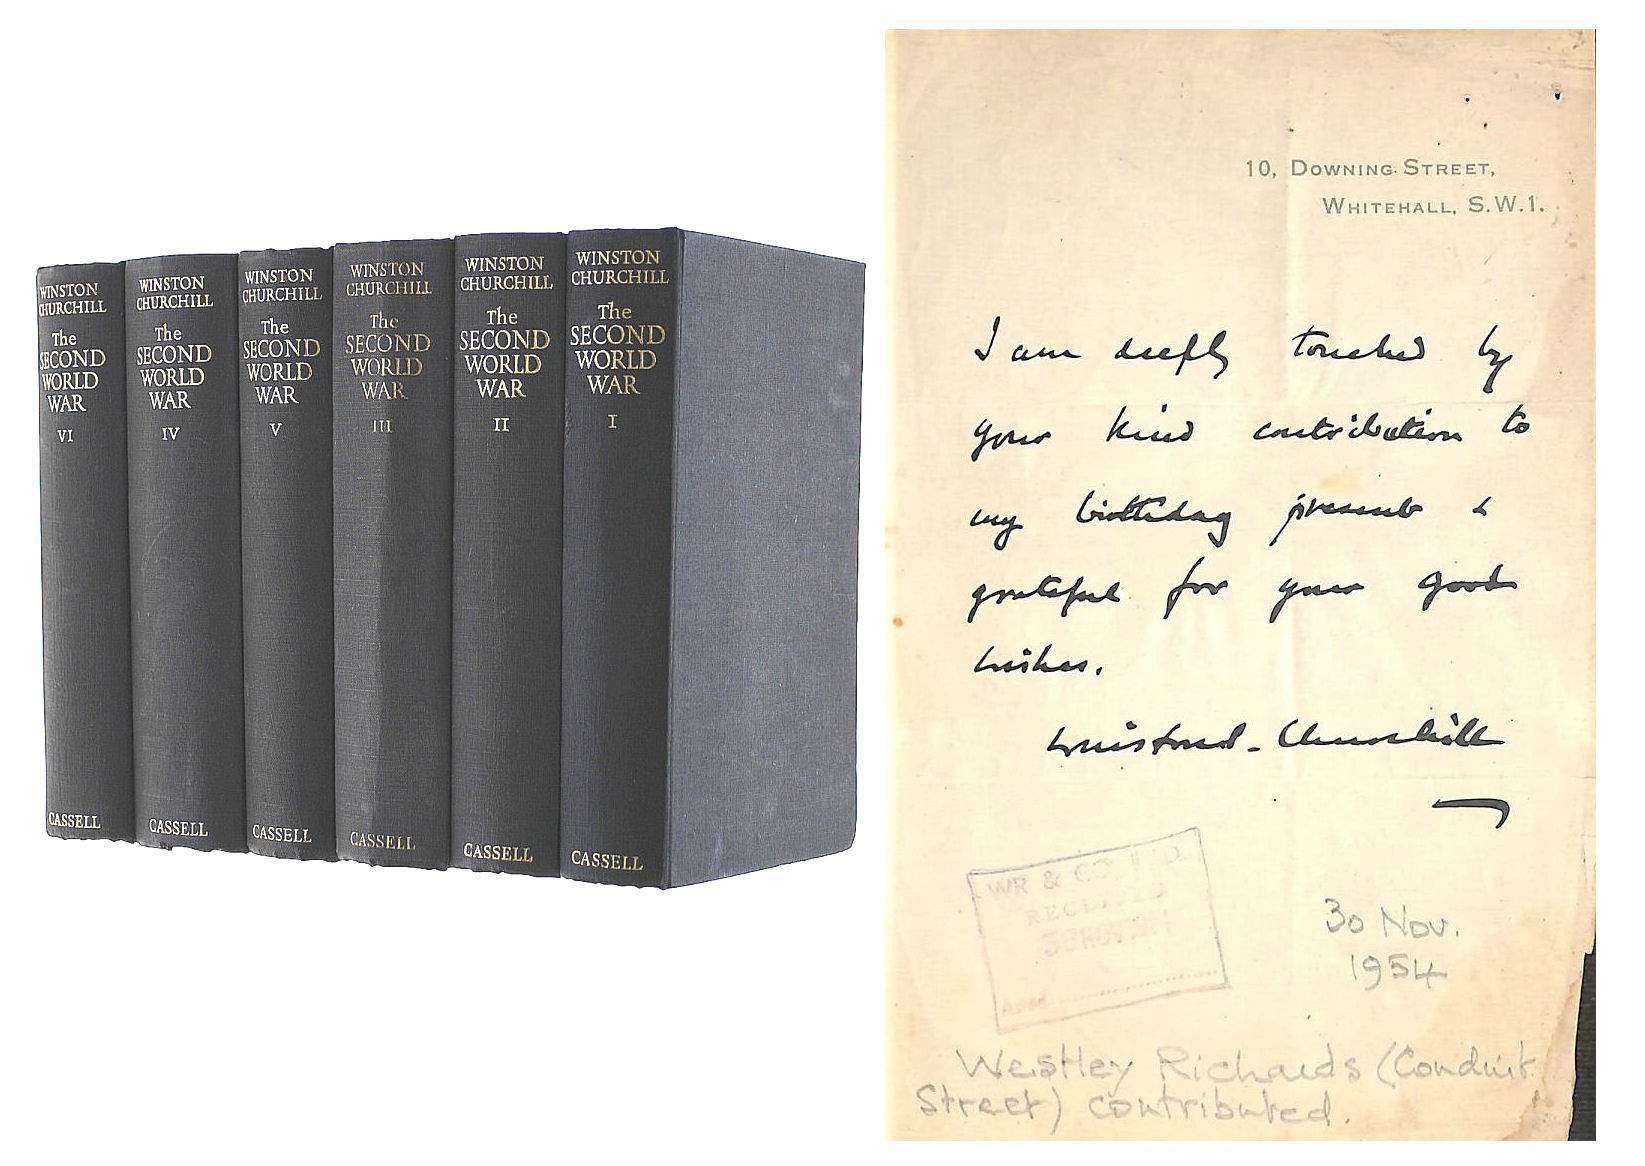 WINSTON
CHURCHILL
The
SECOND
WORLD
WAR
VI
CASSELL
WINSTON
CHURCHILL
The
SECOND
WORLD
WAR
IV
CASSELL
WINSTON
CHURCHILL
The
SECOND
WORLD
WAR
V
CASSELL
WINSTON
CHURCHILL
The
SECOND
WORLD
WAR
III
CASSELL
WINSTON
CHURCHILL
The
SECOND
WORLD
WAR
II
CASSELL
WINSTON
CHURCHILL
The
SECOND
WORLD
WAR
I
CASSELL
10, DOWNING STREET,
WHITEHALL, S.W.1.
I am deeply touched by
your kind contribution to
my birthday present &
grateful for your good
wishes.
Winston S. Churchill
WR & CO. LTD.
RECEIVED
30 NOV 1954
30 Nov.
1954
Westley Richards (Conduit
Street) contributed.